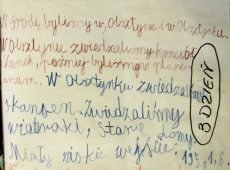 W środę byliśmy w Olsztynie i w Olsztynku.
W Olsztynie zwiedzaliśmy kościół
Zamek, później byliśmy w plane-
tarium. W Olsztynku zwiedzaliśmy
skansen. Zwiedzaliśmy
wiatraki, stare domy.
Miały niskie wejścia.
3 DZIEŃ